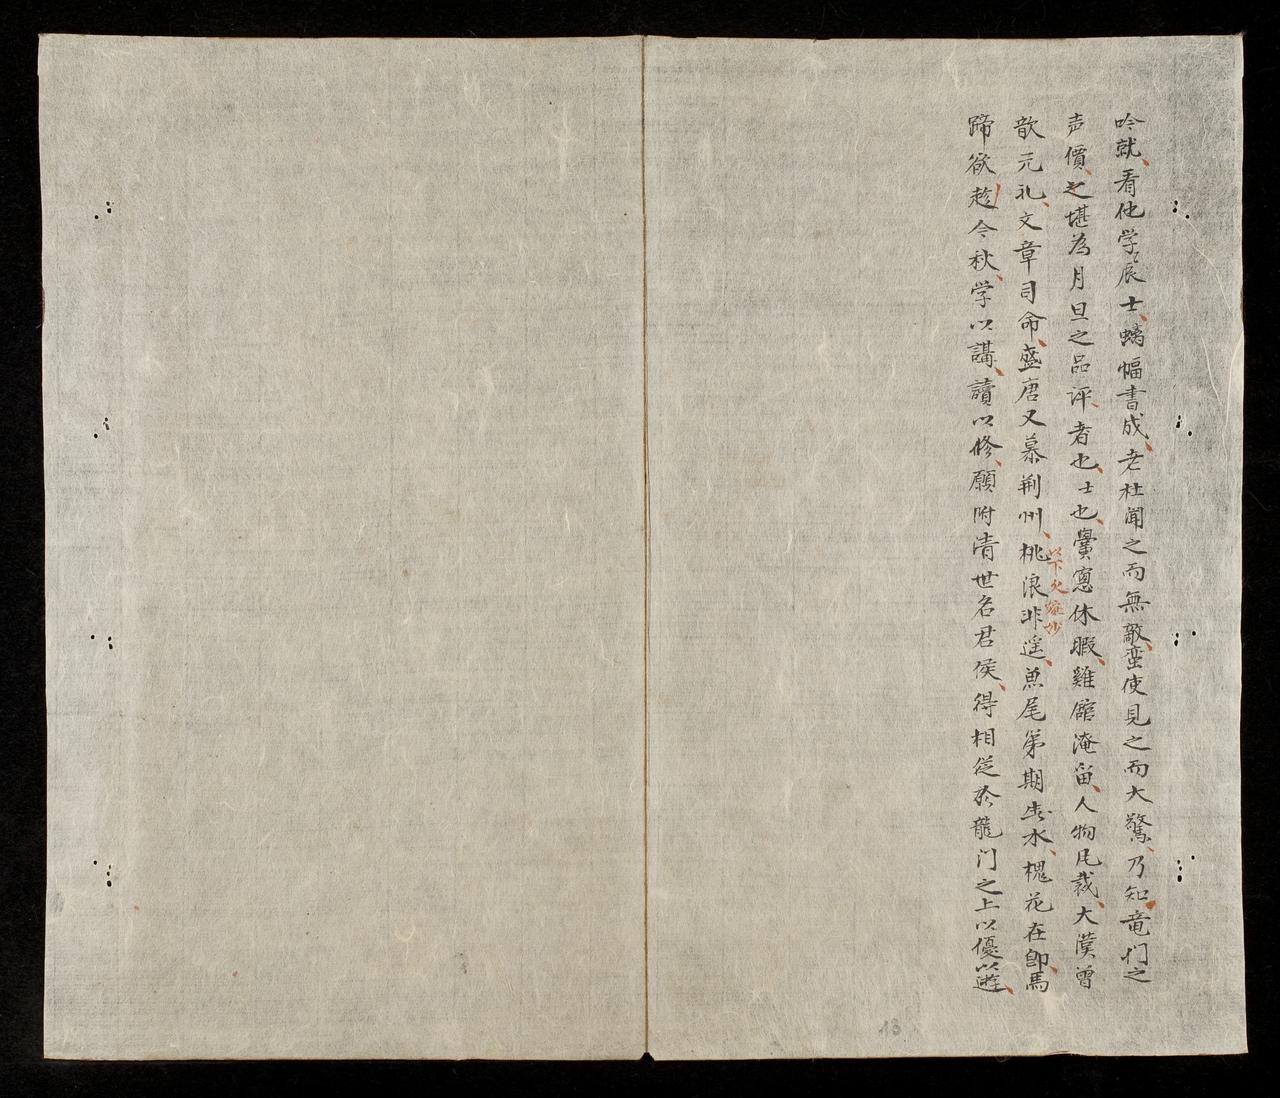 吟就看他学々辰士螭幅書成老杜聞之而無敵蛮使見之而大驚乃知竜门之
声價之堪為月旦之品評者也士也黌窓休暇雞館淹留人物凡裁大漢曾
歆元礼文章司命盛唐又慕荆州桃浪非遥魚尾第期出水槐花在即馬
以下欠
蹄欲趁今秋学以講讀以修願附清世名君侯得相從於龍门之上以優以遊
13